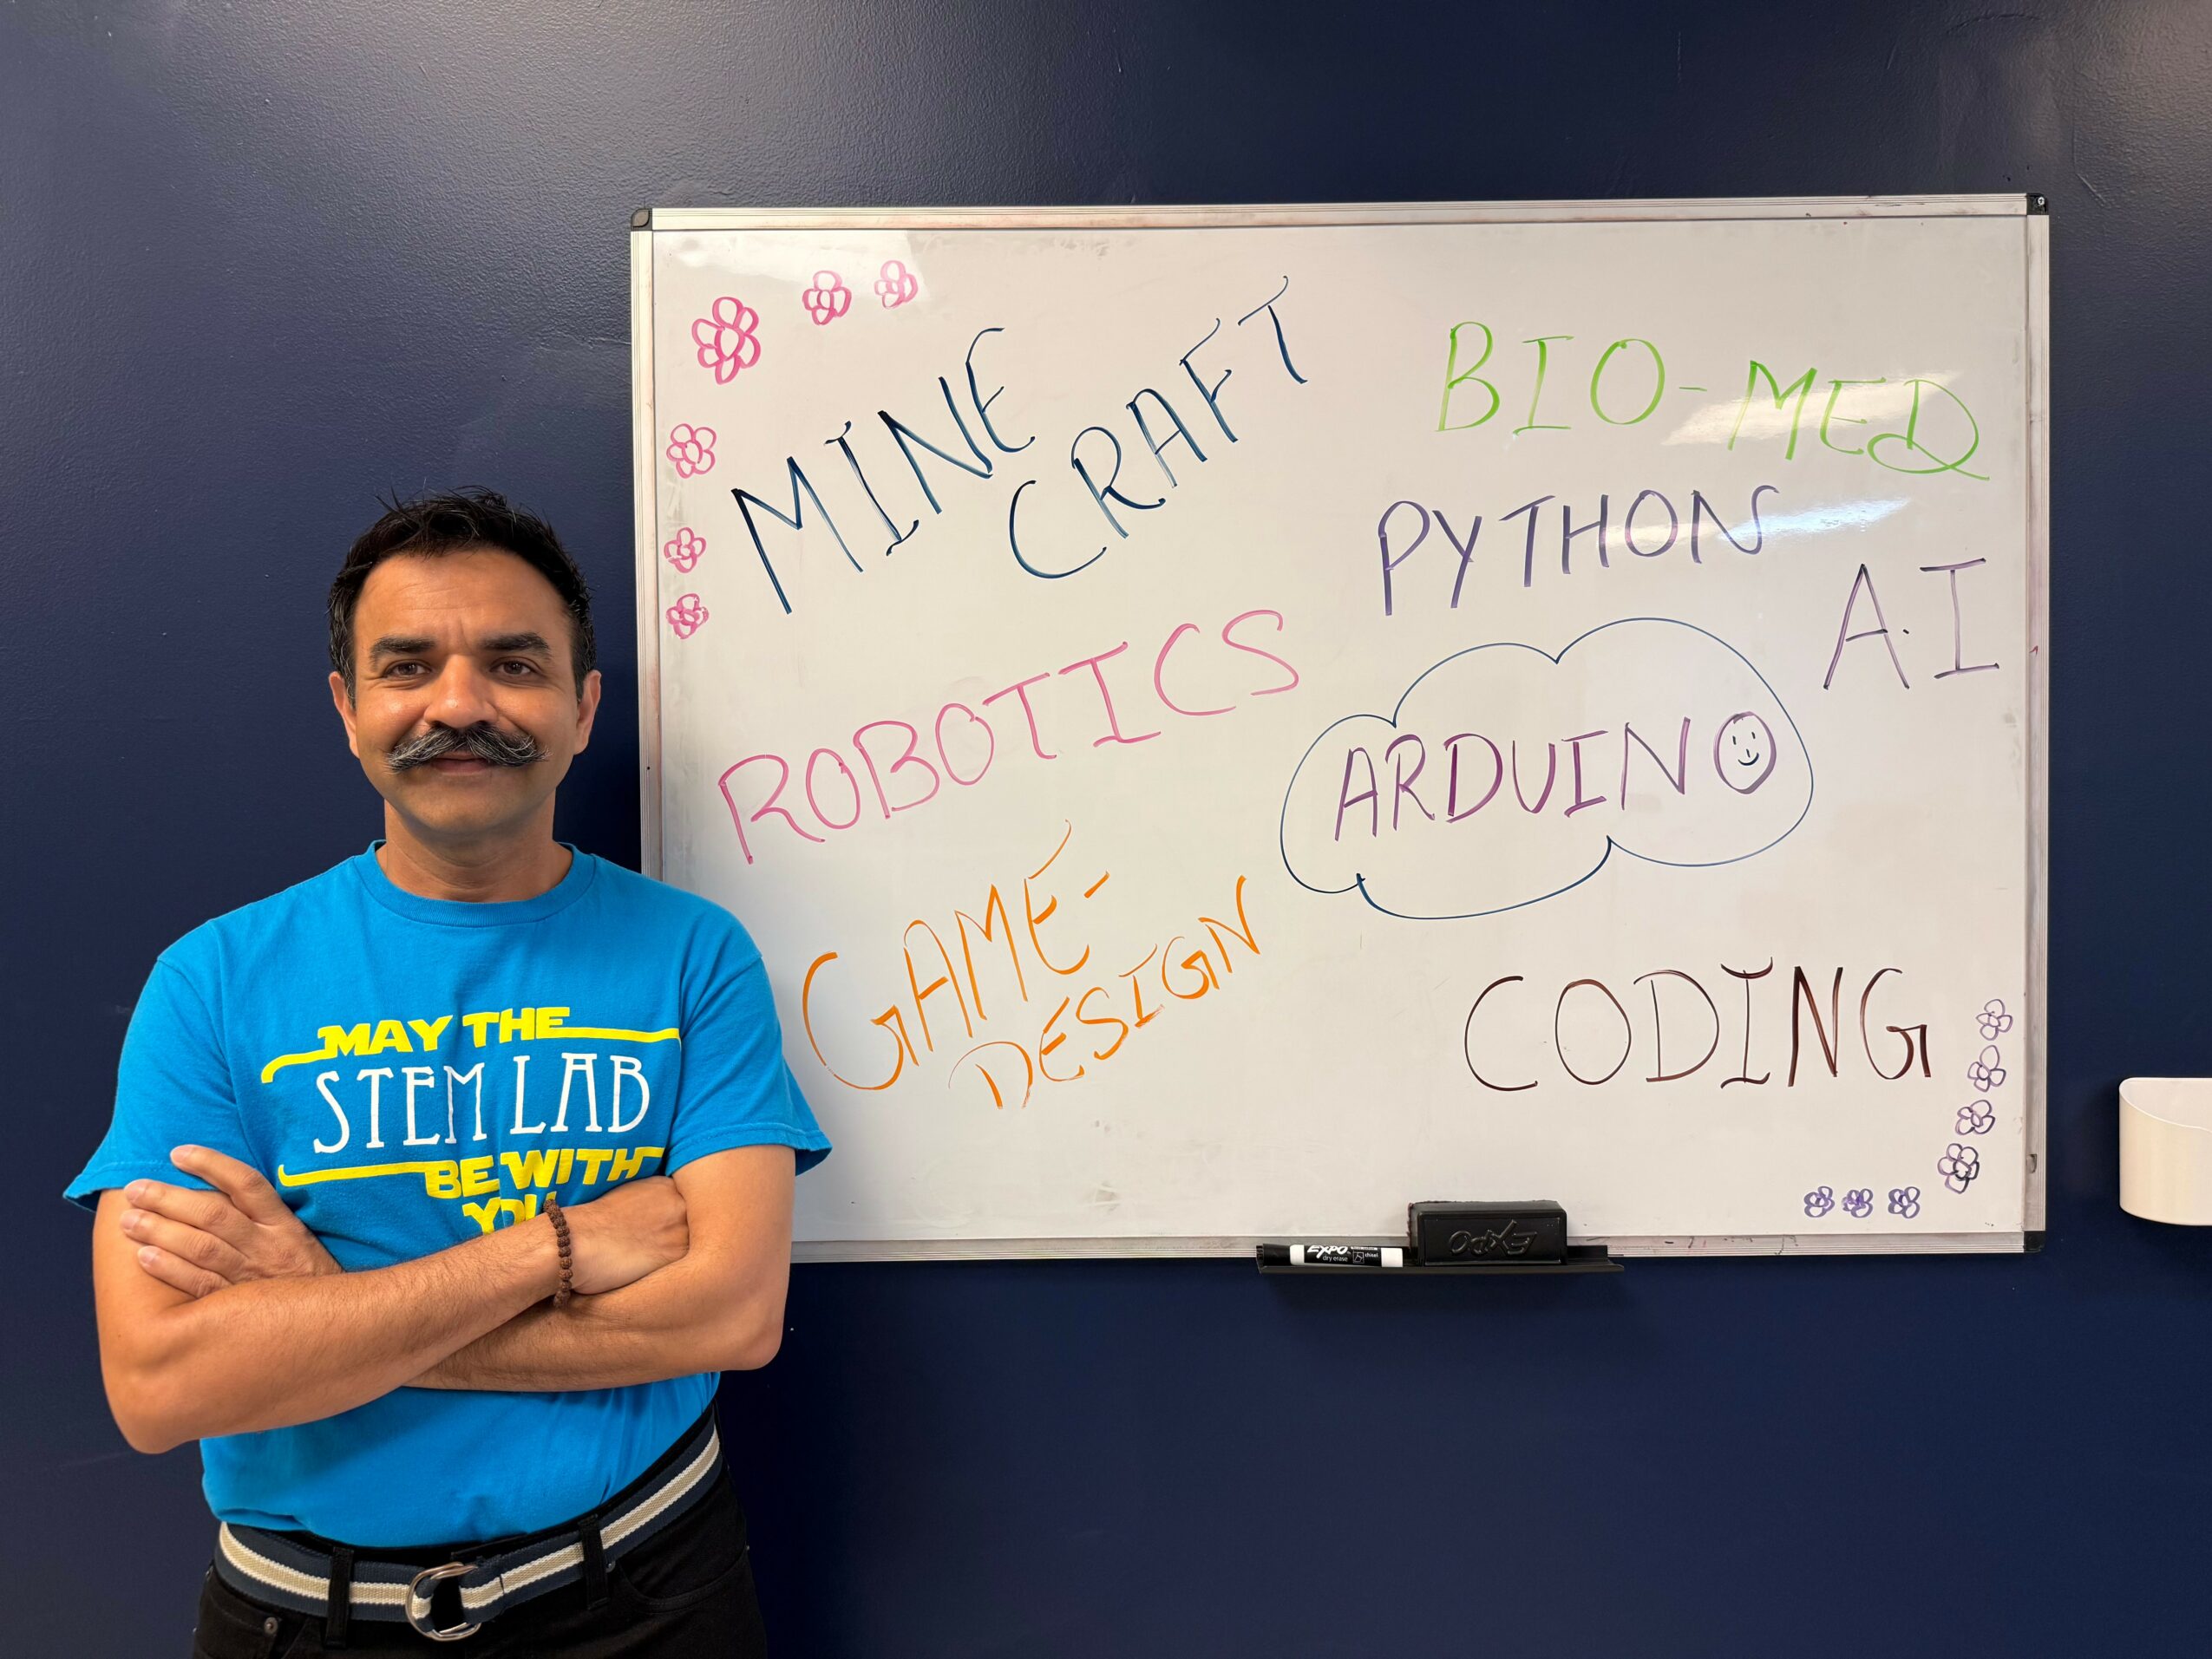 MINE
CRAFT
BIO-MED
PYTHON
A.I
ROBOTICS
ARDUINO
GAME-
DESIGN
CODING
MAY THE
STEM LAB
BE WITH
YOU
EXPO
dry erase
chisel
EXPO